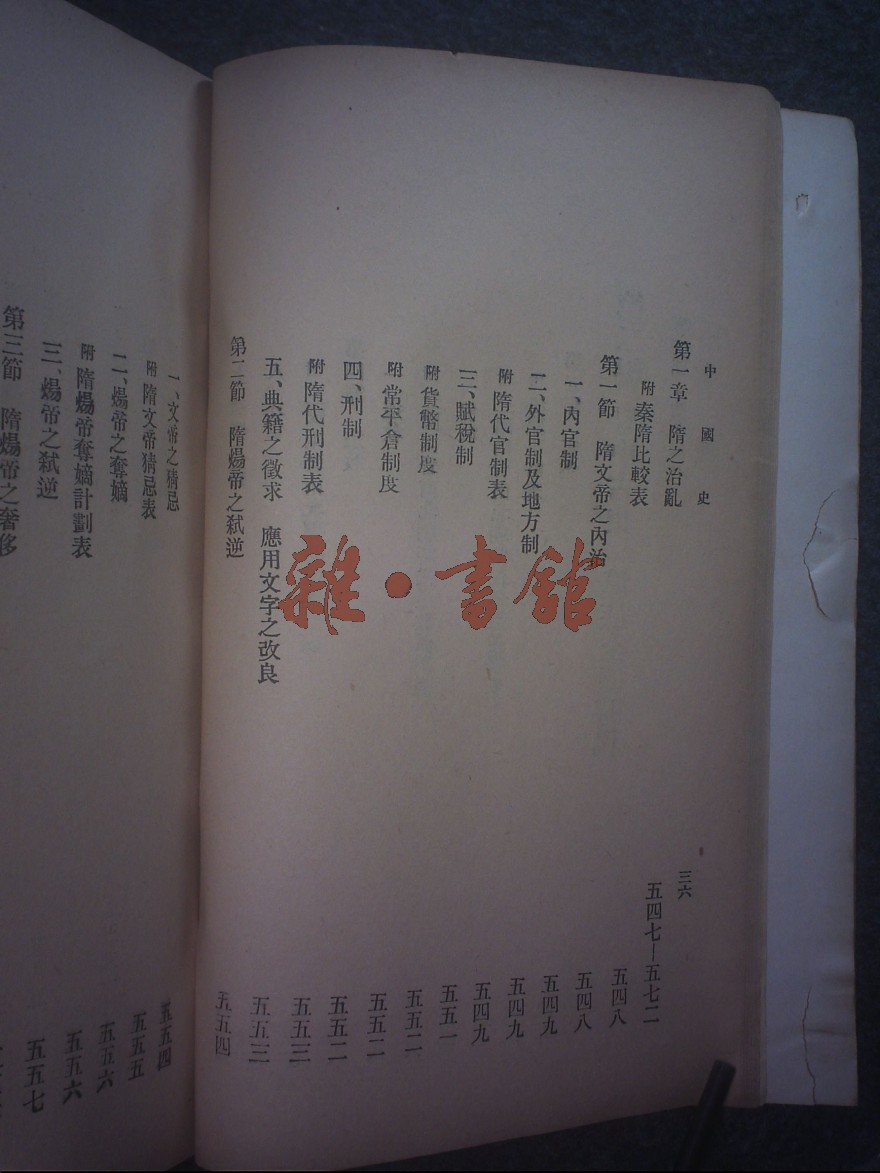 中國史
三六
第一章 隋之治亂 五四七—五七二
附 秦隋比較表 五四八
第一節 隋文帝之內治 五四八
一、內官制 五四九
二、外官制及地方制 五四九
附 隋代官制表 五四九
三、賦稅制 五五一
附 貨幣制度 五五二
附 常平倉制度 五五二
四、刑制 五五二
附 隋代刑制表 五五三
五、典籍之徵求 應用文字之改良 五五三
第二節 隋煬帝之弒逆 五五四
一、文帝之猜忌 五五四
附 隋文帝猜忌表 五五五
二、煬帝之奪嫡 五五六
附 隋煬帝奪嫡計劃表 五五六
三、煬帝之弒逆 五五七
第三節 隋煬帝之奢侈
雜·書館